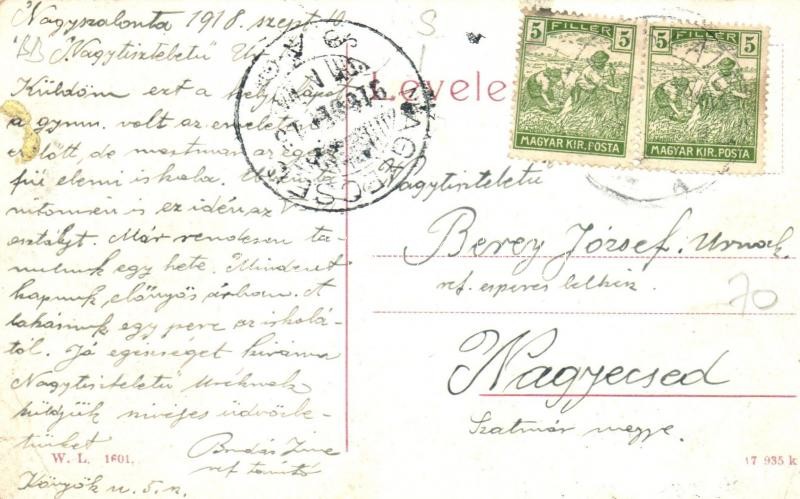 Nagyszalonta 1918. szept. 10
Nagytiszteletű Úr
Küldöm ezt a
a gymn. volt az
de mostman az
fiú elemi iskola.
nitómsén is ez idén az V
osztályt. Már rendesen ta-
nulunk egy hete. Mindent
kapunk előnyös árban. A
lakásunk egy perc az iskolá-
tól. Jó egészséget kívánva
Nagytiszteletű Uréknak
küldjük szives üdvözle-
tünket
ref. tanító
W. L. 1601.
Levele
5 FILLÉR 5
MAGYAR KIR. POSTA
5 FILLÉR 5
MAGYAR KIR. POSTA
NAGYECSED
Nagytiszteletű
Berey József. Urnak.
ref. esperes lelkész
70
Nagyecsed
Szatmár megye.
17 935 k